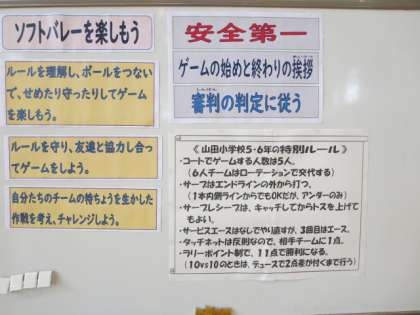 ソフトバレーを楽しもう
ルールを理解し、ボールをつない
で、せめたり守ったりしてゲーム
を楽しもう。
ルールを守り、友達と協力し合っ
てゲームをしよう。
自分たちのチームの特ちょうを生かした
作戦を考え、チャレンジしよう。
安全第一
ゲームの始めと終わりの挨拶
審判の判定に従う
《 山田小学校5・6年の特別ルール 》
・コートでゲームする人数は5人。
(6人チームはローテーションで交代する)
・サーブはエンドラインの外から打つ。
(1本内側ラインからでもOKだが、アンダーのみ)
・サーブレシーブは、キャッチしてからトスを上げて
もよい。
・サービスエースはなしでやり直すが、3回目はエース。
・タッチネットは反則なので、相手チームに1点。
・ラリーポイント制で、11点で勝利になる。
(10vs10のときは、デュースで2点差が付くまで行う)